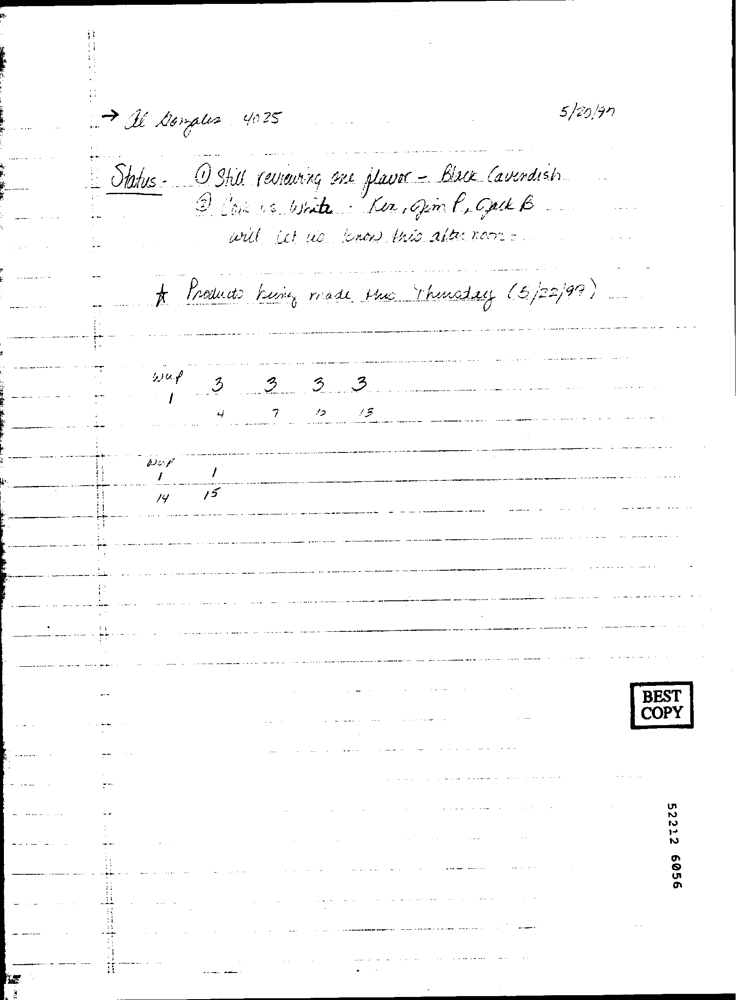 → Al Gonzales 4025 5/20/97
Status - ① Still reviewing one flavor - Black Cavendish
② vs. White - Ken, Jim P, Jack B
will let us know this afternoon
★ Products being made this Thursday (5/22/97)
3 3 3 3
1
4 7 15
1 1
14 15
BEST
COPY
52212 6056